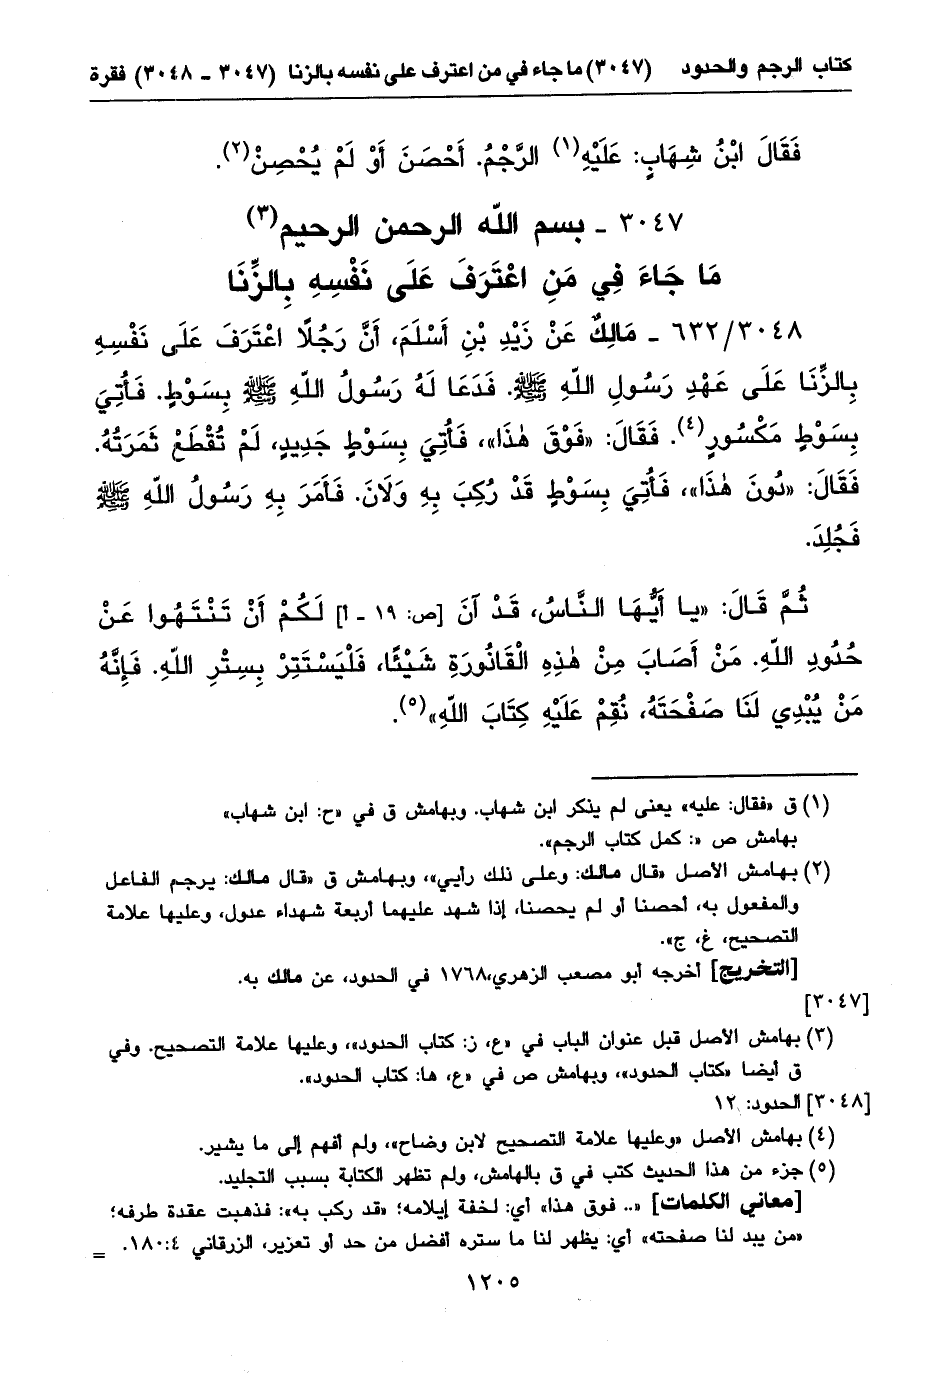 كتاب الرجم والحدود (٣٠٤٧) ما جاء في من اعترف على نفسه بالزنا (٣٠٤٧ - ٣٠٤٨) فقرة
فَقَالَ ابْنُ شِهَابٍ: عَلَيْهِ(١) الرَّجْمُ. أَحْصَنَ أَوْ لَمْ يُحْصِنْ(٢).
٣٠٤٧ - بسم الله الرحمن الرحيم(٣)
مَا جَاءَ فِي مَنِ اعْتَرَفَ عَلَى نَفْسِهِ بِالزِّنَا
٦٣٢/٣٠٤٨ - مَالِكٌ عَنْ زَيْدِ بْنِ أَسْلَمَ، أَنَّ رَجُلًا اعْتَرَفَ عَلَى نَفْسِهِ
بِالزِّنَا عَلَى عَهْدِ رَسُولِ اللهِ ﷺ. فَدَعَا لَهُ رَسُولُ اللهِ ﷺ بِسَوْطٍ. فَأُتِيَ
بِسَوْطٍ مَكْسُورٍ(٤). فَقَالَ: «فَوْقَ هٰذَا»، فَأُتِيَ بِسَوْطٍ جَدِيدٍ، لَمْ تُقْطَعْ ثَمَرَتُهُ.
فَقَالَ: «دُونَ هٰذَا»، فَأُتِيَ بِسَوْطٍ قَدْ رُكِبَ بِهِ وَلَانَ. فَأَمَرَ بِهِ رَسُولُ اللهِ ﷺ
فَجُلِدَ.
ثُمَّ قَالَ: «يا أَيُّهَا النَّاسُ، قَدْ آنَ [ص: ١٩ - أ] لَكُمْ أَنْ تَنْتَهُوا عَنْ
حُدُودِ اللهِ. مَنْ أَصَابَ مِنْ هٰذِهِ الْقَاذُورَةِ شَيْئًا، فَلْيَسْتَتِرْ بِسِتْرِ اللهِ. فَإِنَّهُ
مَنْ يُبْدِي لَنَا صَفْحَتَهُ، نُقِمْ عَلَيْهِ كِتَابَ اللهِ»(٥).
(١) ق «فقال: عليه» يعنى لم يذكر ابن شهاب. وبهامش ق في «ح: ابن شهاب»
بهامش ص «: كمل كتاب الرجم».
(٢) بهامش الأصل «قال مالك: وعلى ذلك رأيي»، وبهامش ق «قال مالك: يرجم الفاعل
والمفعول به، أحصنا أو لم يحصنا، إذا شهد عليهما أربعة شهداء عدول، وعليها علامة
التصحيح، غ، ج».
[التخريج] أخرجه أبو مصعب الزهري،١٧٦٨ في الحدود، عن مالك به.
[٣٠٤٧]
(٣) بهامش الأصل قبل عنوان الباب في «ع، ز: كتاب الحدود»، وعليها علامة التصحيح. وفي
ق أيضا «كتاب الحدود»، وبهامش ص في «ع، ها: كتاب الحدود».
[٣٠٤٨] الحدود: ١٢
(٤) بهامش الأصل «وعليها علامة التصحيح لابن وضاح»، ولم أفهم إلى ما يشير.
(٥) جزء من هذا الحديث كتب في ق بالهامش، ولم تظهر الكتابة بسبب التجليد.
[معاني الكلمات] «.. فوق هذا» أي: لخفة إيلامه؛ «قد ركب به»: فذهبت عقدة طرفه؛
«من يبد لنا صفحته» أي: يظهر لنا ما ستره أفضل من حد أو تعزير، الزرقاني ٤:‏١٨٠. =
١٢٠٥